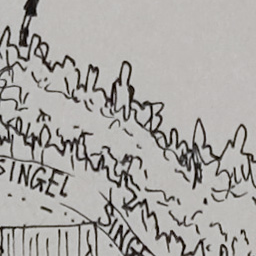 SINGEL
SING